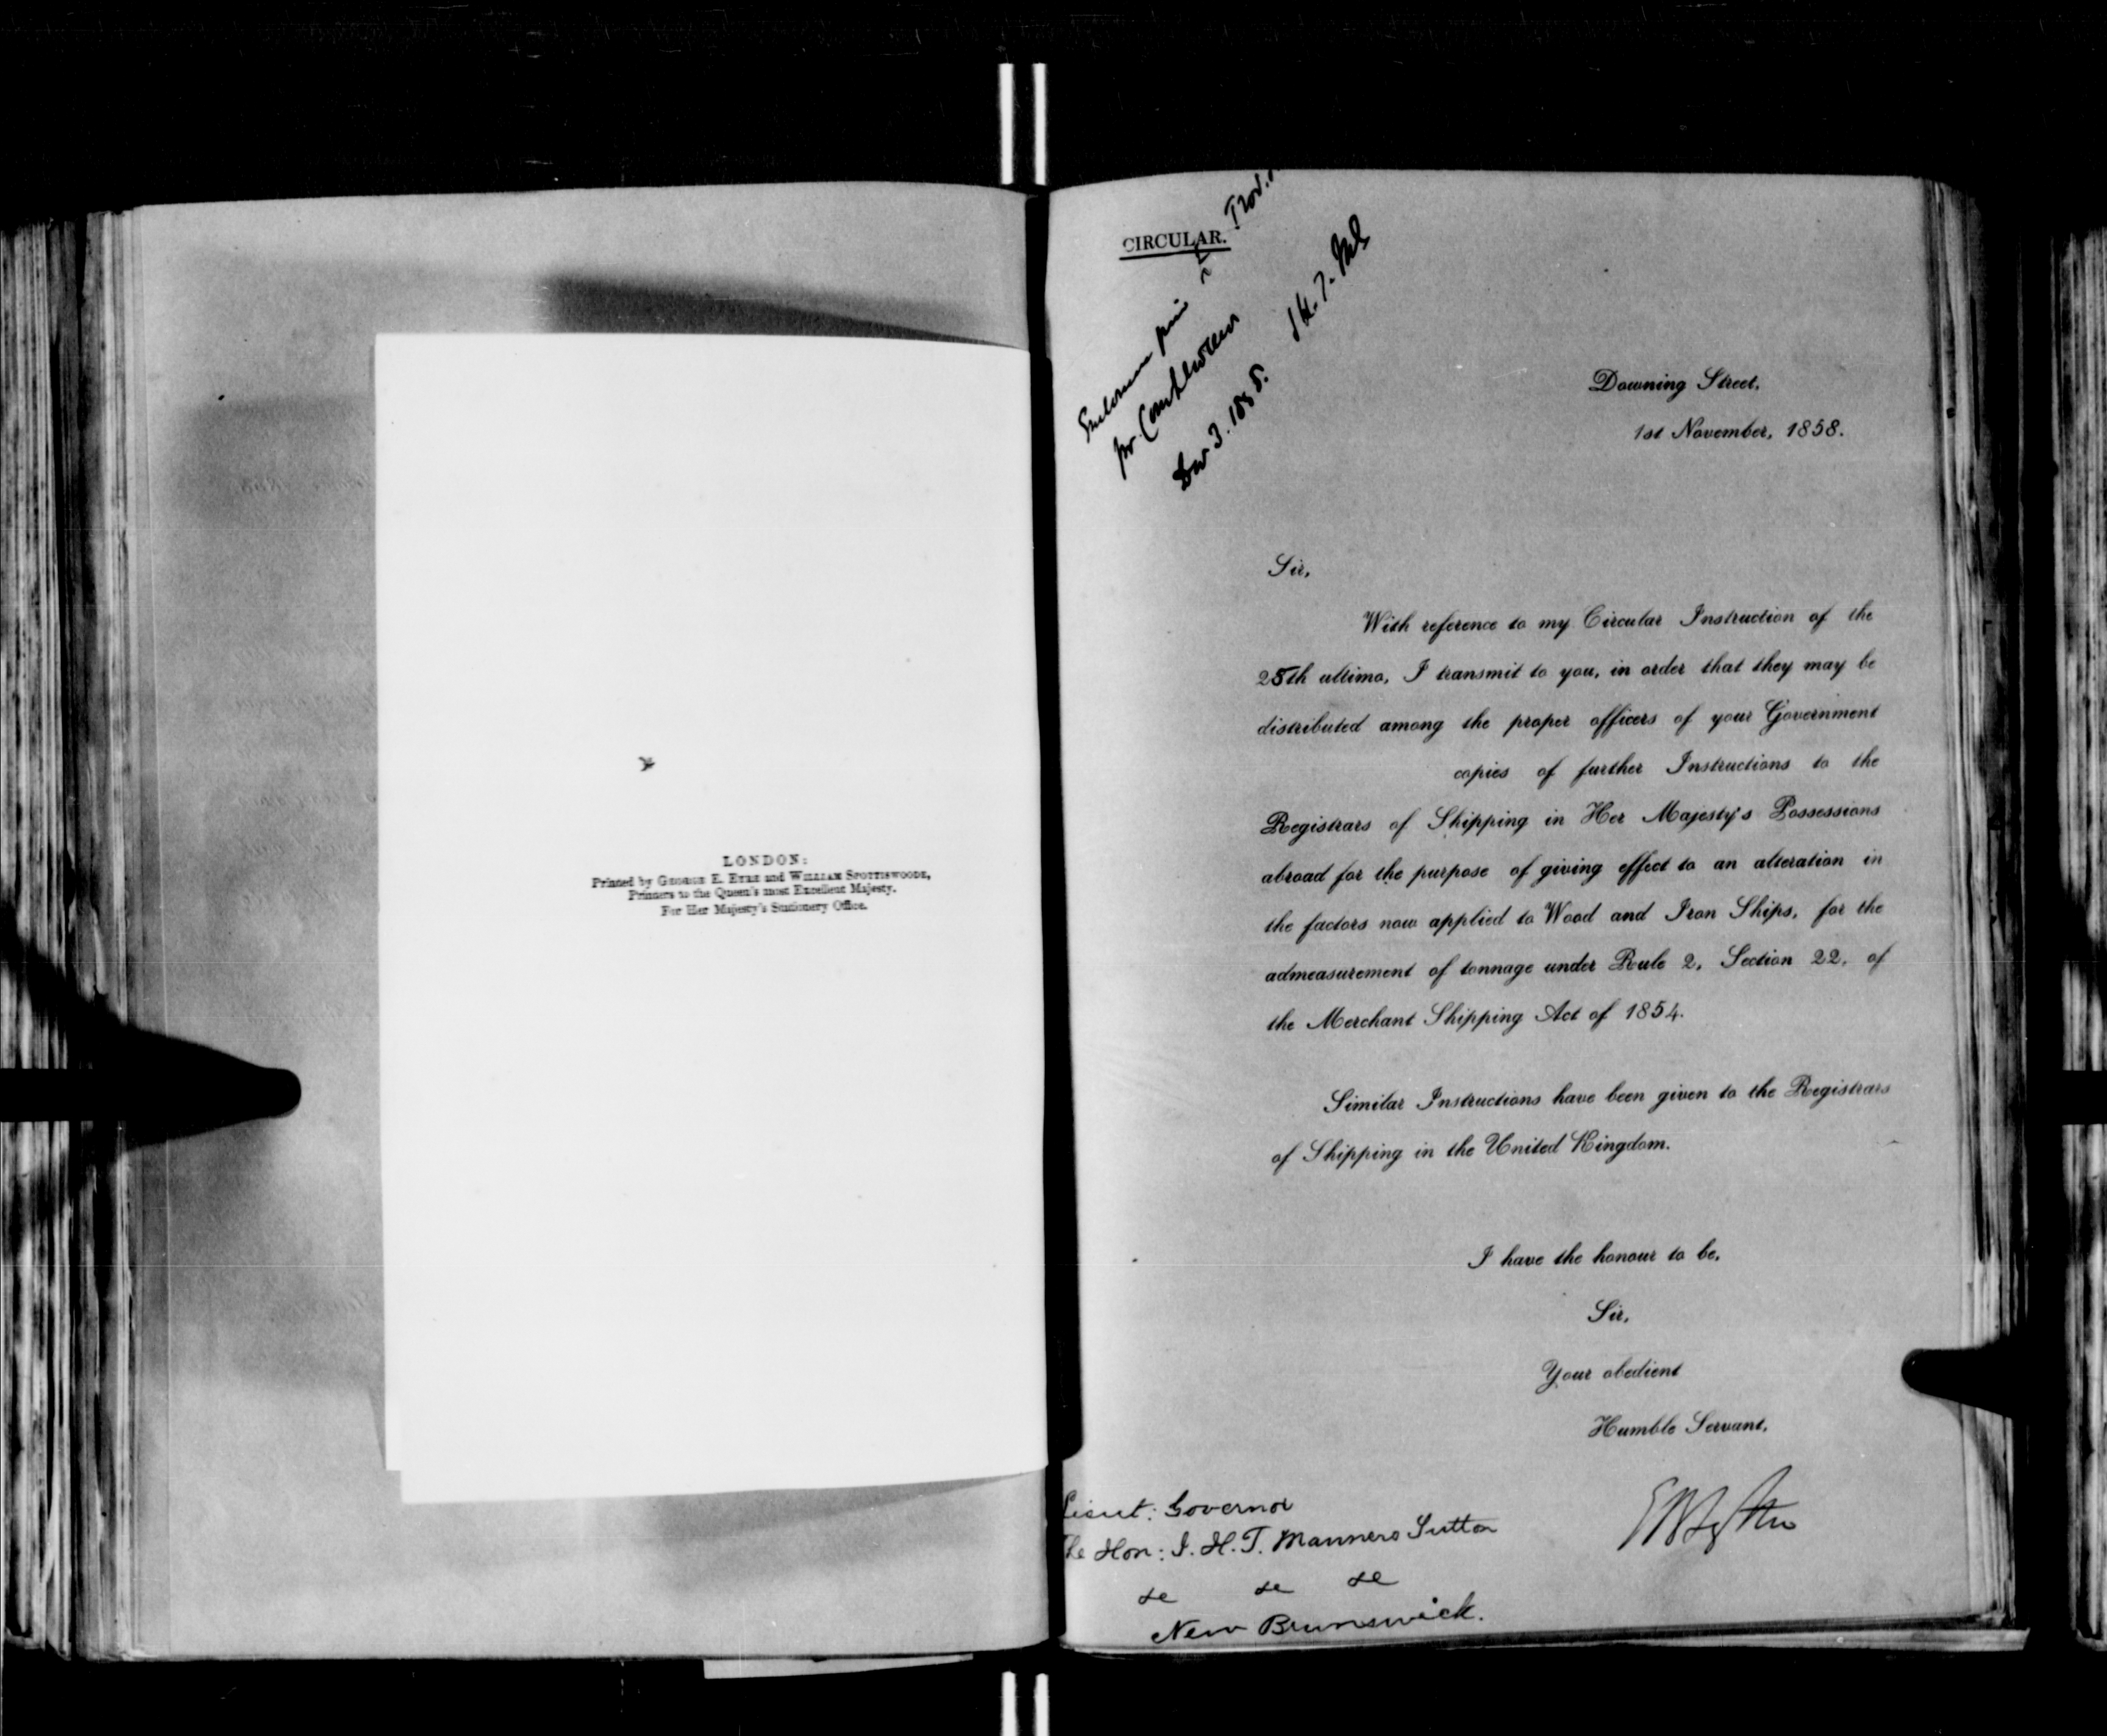 LONDON:
Printed by GEORGE E. EYRE and WILLIAM SPOTTISWOODE,
Printers to the Queen's most Excellent Majesty.
For Her Majesty's Stationery Office.
CIRCULAR.
1858.
Downing Street,
1st November, 1858.
Sir,
With reference to my Circular Instruction of the
25th ultimo, I transmit to you, in order that they may be
distributed among the proper officers of your Government
copies of further Instructions to the
Registrars of Shipping in Her Majesty's Possessions
abroad for the purpose of giving effect to an alteration in
the factors now applied to Wood and Iron Ships, for the
admeasurement of tonnage under Rule 2, Section 22, of
the Merchant Shipping Act of 1854.
Similar Instructions have been given to the Registrars
of Shipping in the United Kingdom.
I have the honour to be,
Sir,
Your obedient
Humble Servant,
Lieut: Governor
The Hon: J. H. T. Manners Sutton
&c &c &c
New Brunswick.